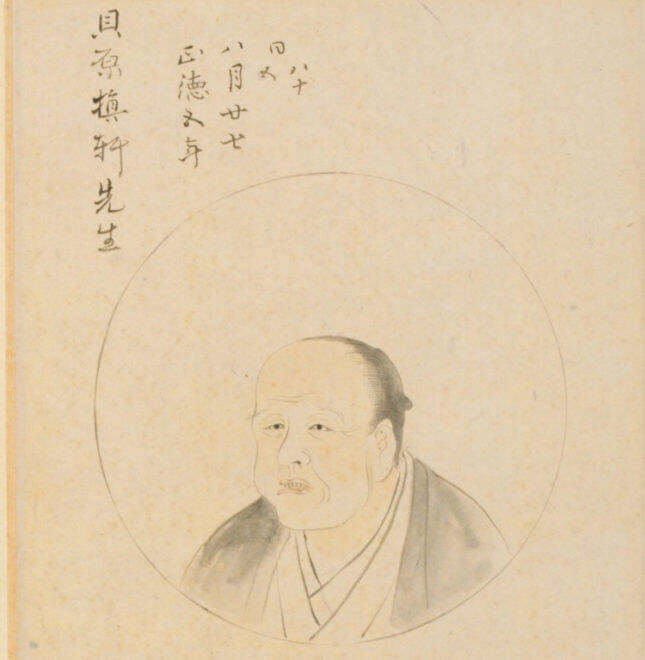 貝原損軒先生
正徳五年
八月廿七
日
八十
五